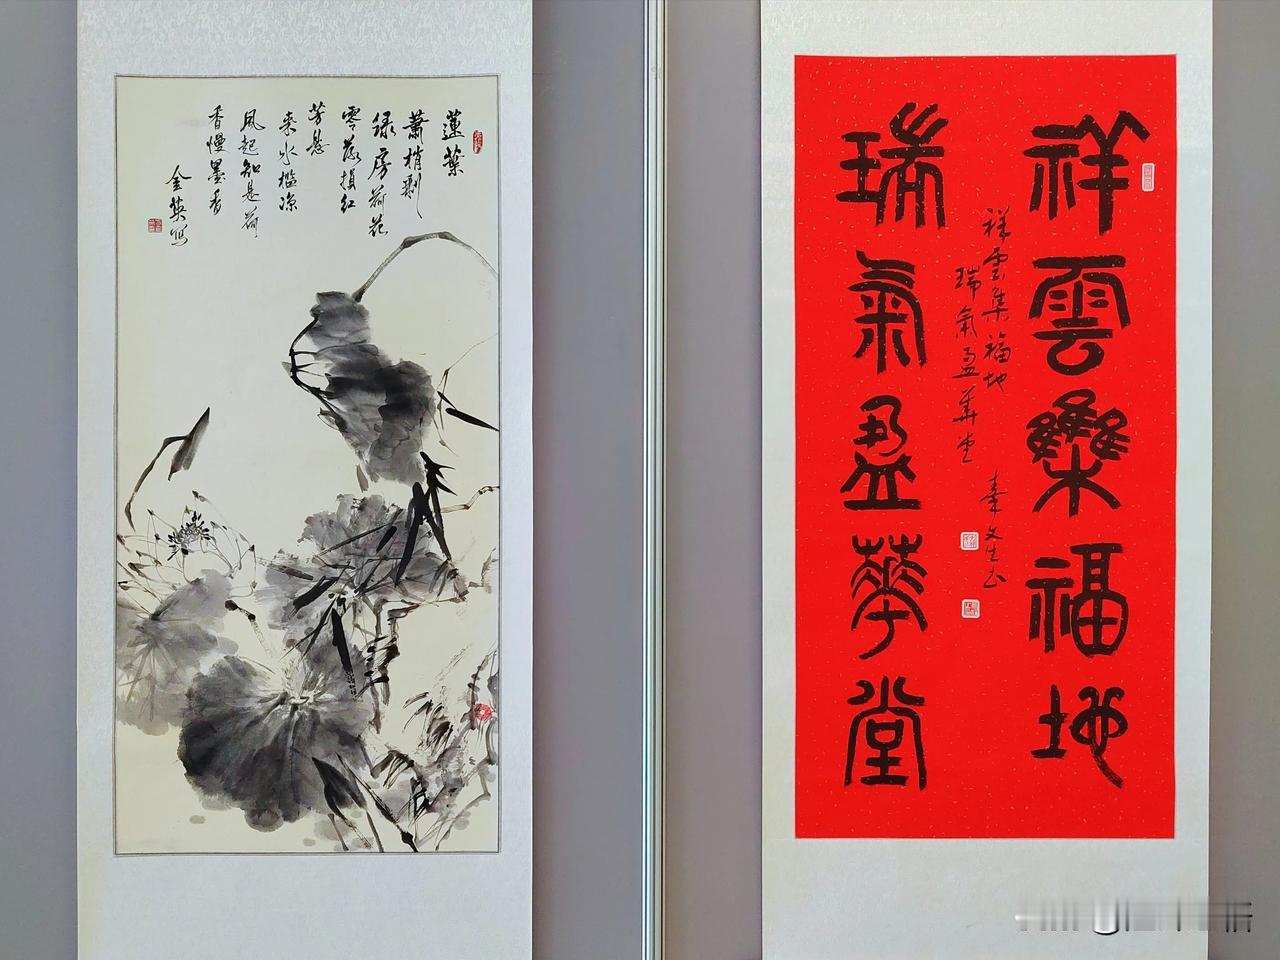 蓮葉
蕭梢剩
绿房荷花
零落損红
芳忽
来水檻涼
風起知是荷
香慢墨香
金英写
祥雲雧福地
瑞氣盈華堂
祥雲集福地
瑞氣盈華堂
秦文生书